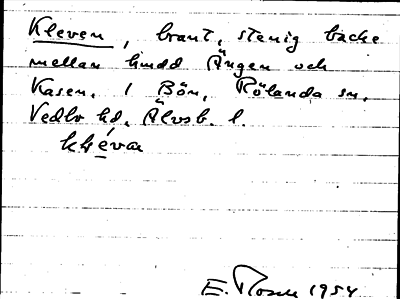 Kleven, brant, stenig backe
mellan hmdd Ängen och
Kasen. I Bön, Rölanda sn,
Vedbo hd. Älvsb. l.
kléva
E. 1954